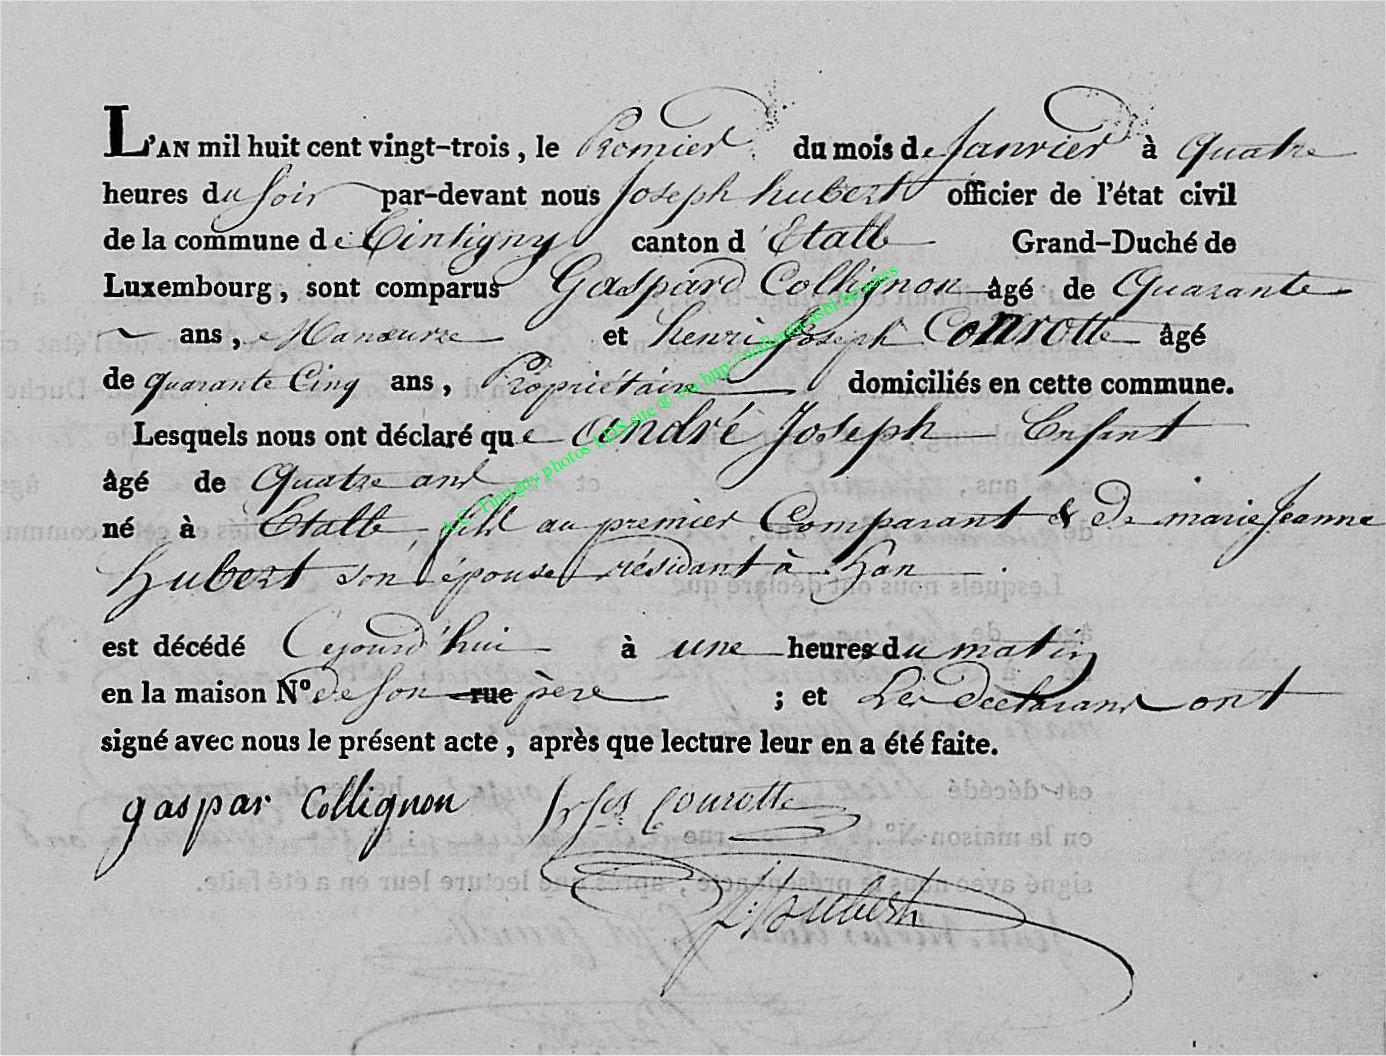 L'AN mil huit cent vingt-trois, le Premier du mois de Janvier à quatre
heures du soir par-devant nous Joseph hubert officier de l'état civil
de la commune de Tintigny canton d'Etalle Grand-Duché de
Luxembourg, sont comparus Gaspard Collignon âgé de Quarante
ans, Manœuvre et henri Joseph Conrotte âgé
de quarante Cinq ans, Propriétaire domiciliés en cette commune.
Lesquels nous ont déclaré que andré Joseph Enfant
âgé de Quatre ans
né à Etalle, fils au premier Comparant & de marie Jeanne
Hubert son épouse résidant à han
est décédé Cejourd'hui à une heures du matin
en la maison N° de son rue père ; et Les déclarans ont
signé avec nous le présent acte, après que lecture leur en a été faite.
gaspar Collignon Conrotte
J. Hubert
A.C. Tintigny photos LDS site ® via http://walloniaasbl-be/actes